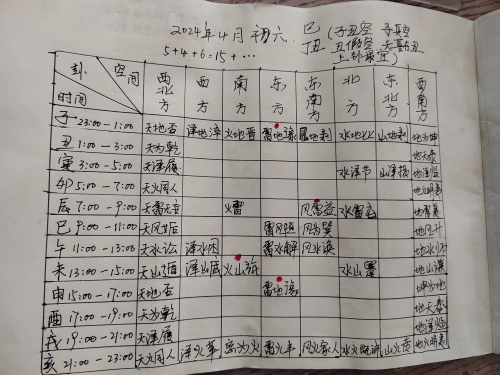 2024年4月初六 巳 (子丑空 子真空
5+4+6=15+… 丁丑 丑假空
卦 空间 时间 西北方 西方 南方 东方 东南方 北方 东北方 西南方
子 23:00-1:00 天地否 泽地萃 火地晋 雷地豫 水地比 山地剥
丑 1:00-3:00 天为乾 地天泰
寅 3:00-5:00 天泽履 水泽节 地泽临
卯 5:00-7:00 天火同人 地火明夷
辰 7:00-9:00 天雷无妄 火雷 风雷益 水雷屯
巳 9:00-11:00 天风姤 雷风恒 地风升
午 11:00-13:00 天水讼 泽水困 雷水解 风水涣 地水师
未 13:00-15:00 天山遁 火山旅 水山蹇 地山谦
申 15:00-17:00 天地否 雷地豫 坤为地
酉 17:00-19:00 天为乾 地天泰
戌 19:00-21:00 天泽履 地泽临
亥 21:00-23:00 天火同人 泽火革 离为火 雷火丰 风火家人 水火既济 山火贲 地火明夷